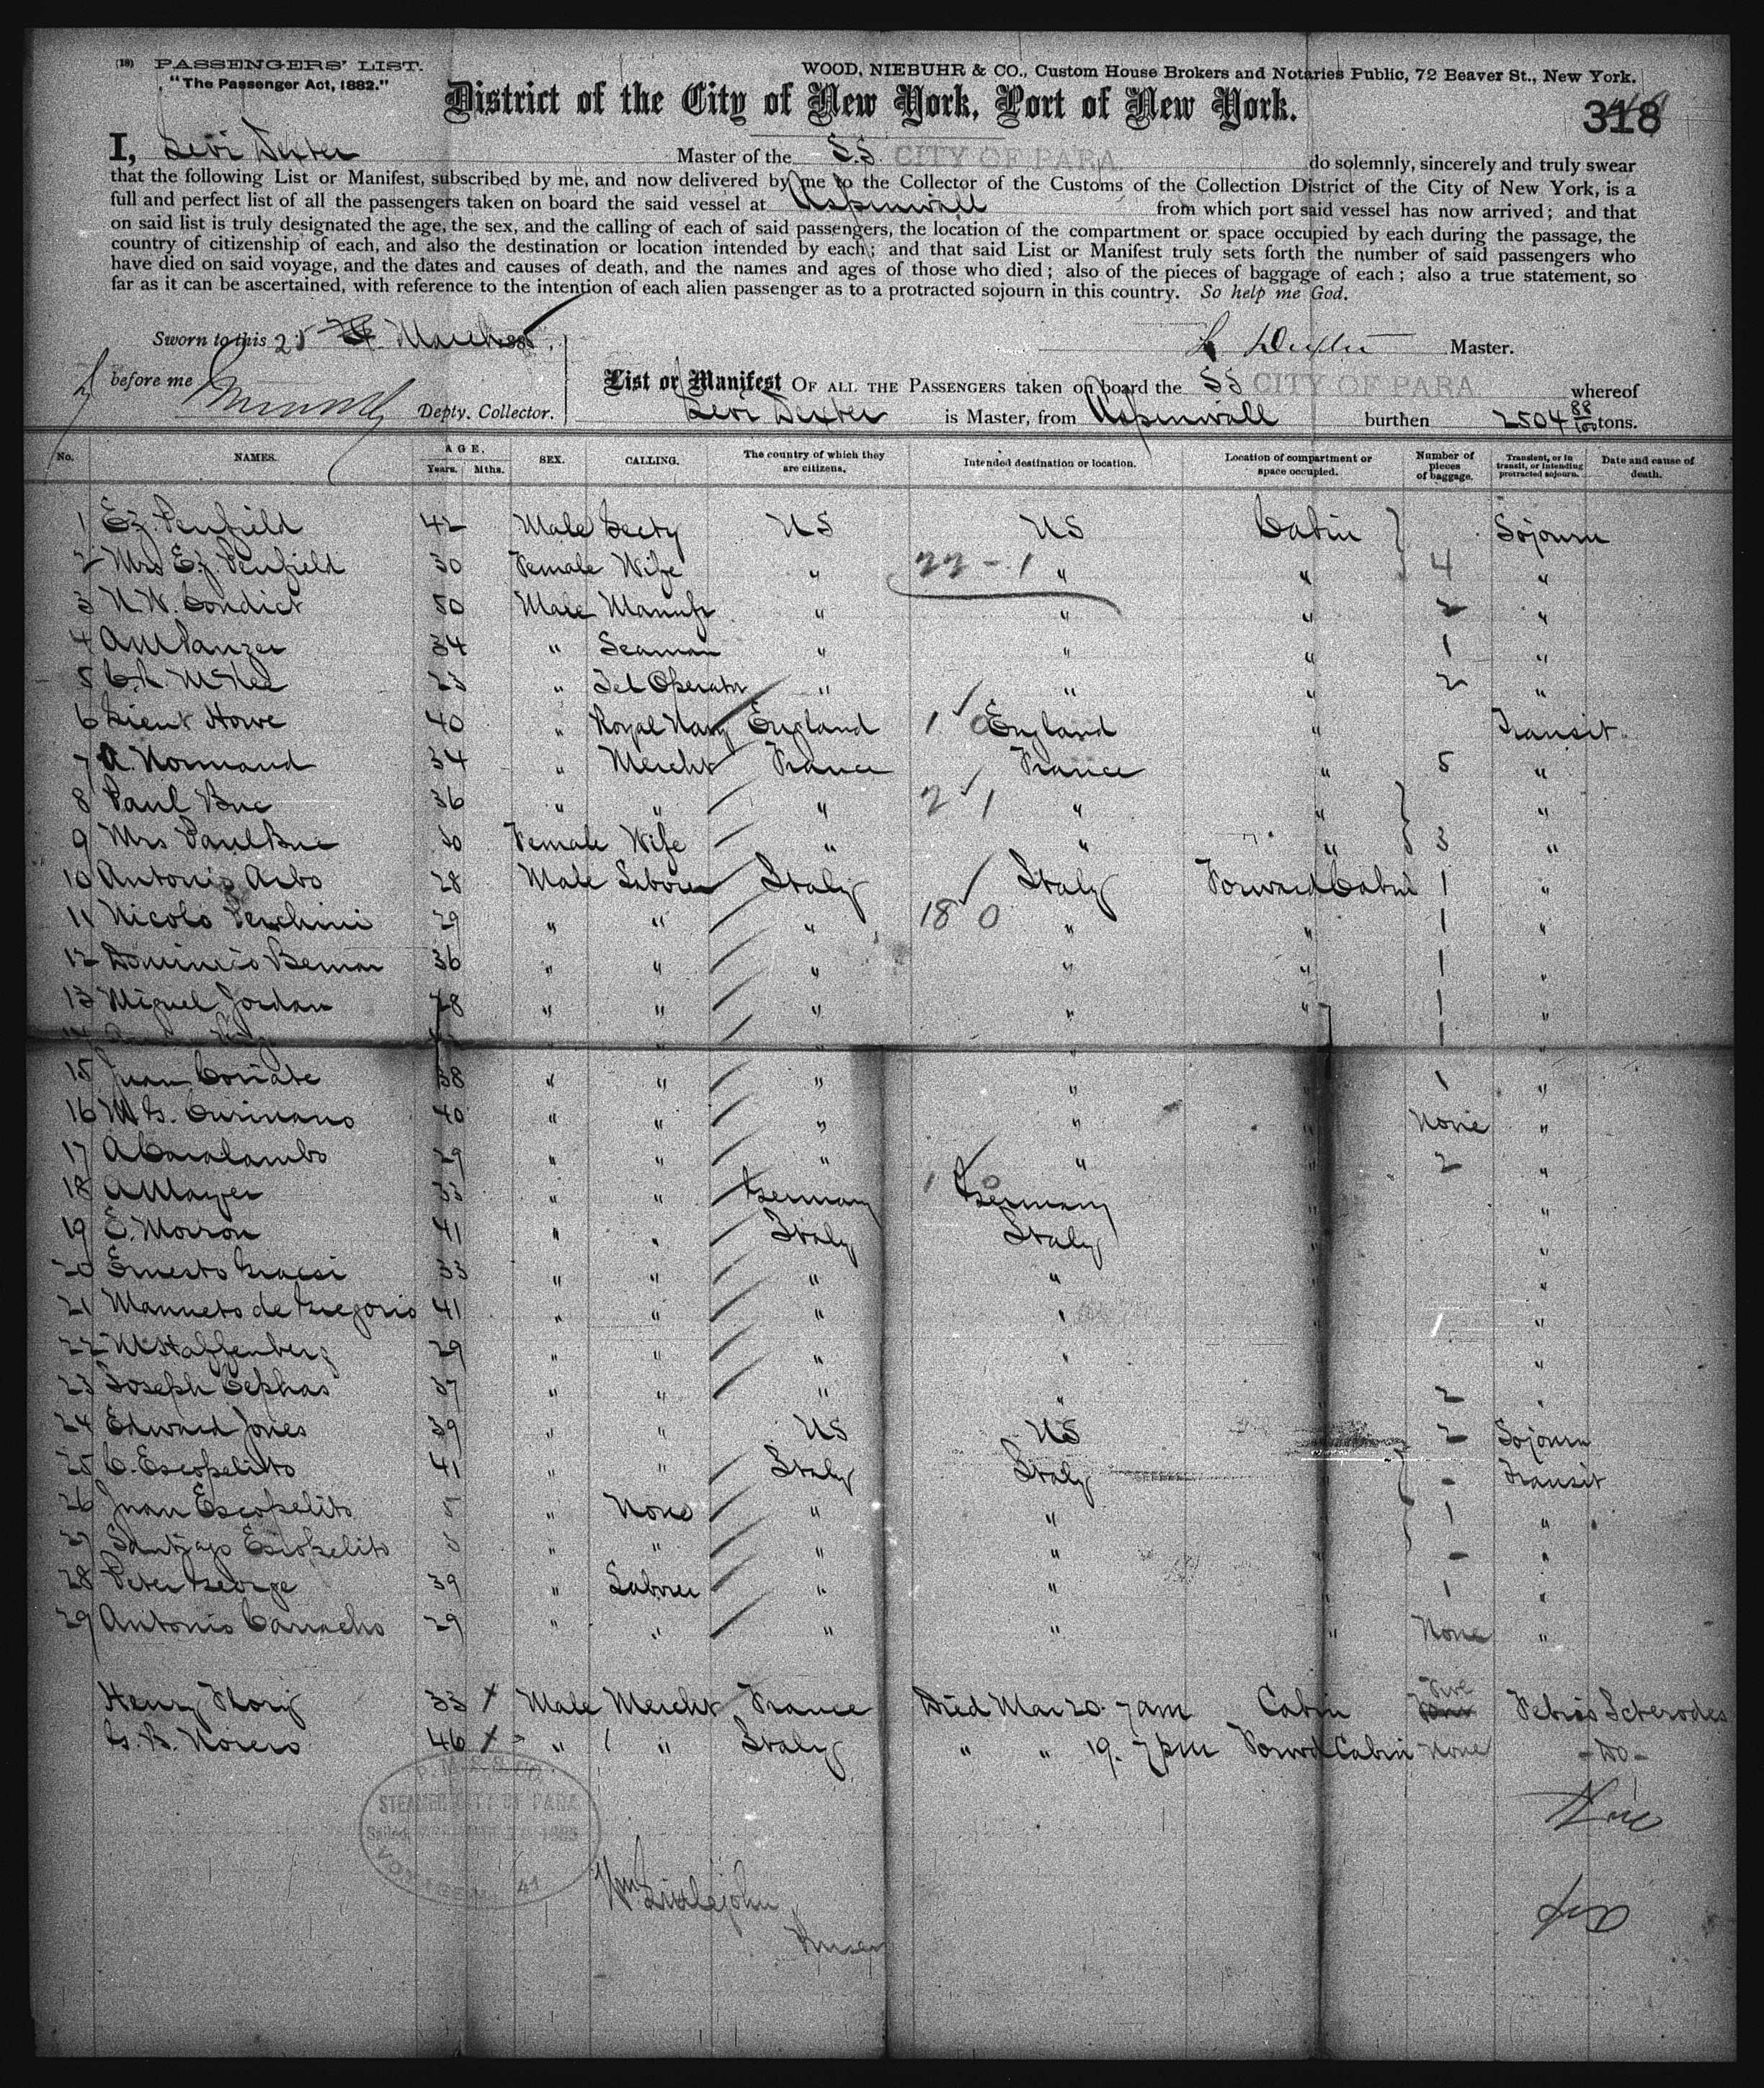 (18) PASSENGERS' LIST.
"The Passenger Act, 1882."
WOOD, NIEBUHR & CO., Custom House Brokers and Notaries Public, 72 Beaver St., New York.
District of the City of New York, Port of New York.
318
I, Levi Dexter Master of the S.S. CITY OF PARA do solemnly, sincerely and truly swear
that the following List or Manifest, subscribed by me, and now delivered by me to the Collector of the Customs of the Collection District of the City of New York, is a
full and perfect list of all the passengers taken on board the said vessel at Aspinwall from which port said vessel has now arrived; and that
on said list is truly designated the age, the sex, and the calling of each of said passengers, the location of the compartment or space occupied by each during the passage, the
country of citizenship of each, and also the destination or location intended by each; and that said List or Manifest truly sets forth the number of said passengers who
have died on said voyage, and the dates and causes of death, and the names and ages of those who died; also of the pieces of baggage of each; also a true statement, so
far as it can be ascertained, with reference to the intention of each alien passenger as to a protracted sojourn in this country. So help me God.
Sworn to this 25 March 188
L Dexter Master.
before me Depty. Collector.
List or Manifest OF ALL THE PASSENGERS taken on board the SS CITY OF PARA whereof
Levi Dexter is Master, from Aspinwall burthen 2504 88/100 tons.
No. NAMES. AGE. Years. Mths. SEX. CALLING. The country of which they are citizens. Intended destination or location. Location of compartment or space occupied. Number of pieces of baggage. Transient, or in transit, or intending protracted sojourn. Date and cause of death.
1 Ez. Penfield 42 Male US US Cabin Sojourn
2 Mrs Ez. Penfield 30 Female Wife " 22 - 1 " " 4 "
3 N.W. Condict 50 Male Manufr " " " 2 "
4 34 " Seaman " " " 1 "
5 23 " Tel Operator " " " 2 "
6 Lieut Howe 40 " Royal Navy England 1 0 England " Transit
7 A. Normand 34 " Mercht France France " 5 "
8 Paul Bue 36 " " " 2 1 " " "
9 Mrs Paul Bue 30 Female Wife " " " 3 "
10 Antonio Arbo 28 Male Laborer Italy Italy Forward Cabin 1 "
11 Nicolo 29 " " " 18 0 " " 1 "
12 Dominico 36 " " " " " 1 "
13 Miguel Jordan 28 " " " " " 1 "
14 " " 1 "
15 Juan 38 " " " " " 1 "
16 40 " " " " " None "
17 A Caralambo 29 " " " " " 2 "
18 A Mayer 33 " " Germany 1 0 Germany " "
19 E. Morron 41 " " Italy Italy " "
20 Ernesto 33 " " " " "
21 de Gregorio 41 " " " " 1 "
22 29 " " " " "
23 Joseph Cephas 37 " " " " 2 "
24 Edward Jones 39 " " US US 2 Sojourn
25 C. Escopelito 41 " " Italy Italy " - Transit
26 Juan Escopelito 5 " None " " " 1 "
27 Santiago Escopelito 8 " " " " " - "
28 Peter George 39 " Laborer " " " 1 "
29 Antonio Camacho 29 " " " " " None "
Henry 33 Male Mercht France Died Mar 20. 7 am Cabin Five
G. B. Norero 46 " " Italy " " 19. 7 pm Forwd Cabin None - Do -
STEAMER CITY OF PARA
41
Wm Littlejohn
Purser